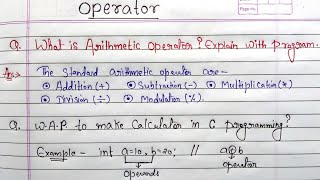 Operator
Page No.
Q. What is Arithmetic operator? Explain with program.
Ans→ The Standard arithmetic operator are -
⊙ Addition (+) ⊙ Subtraction (-) ⊙ Multiplication (*)
⊙ Division (÷) ⊙ Modulation (%).
Q. W.A.P to make Calculator in C programming?
Example - int a=10, b=20; // a+b
operands operator